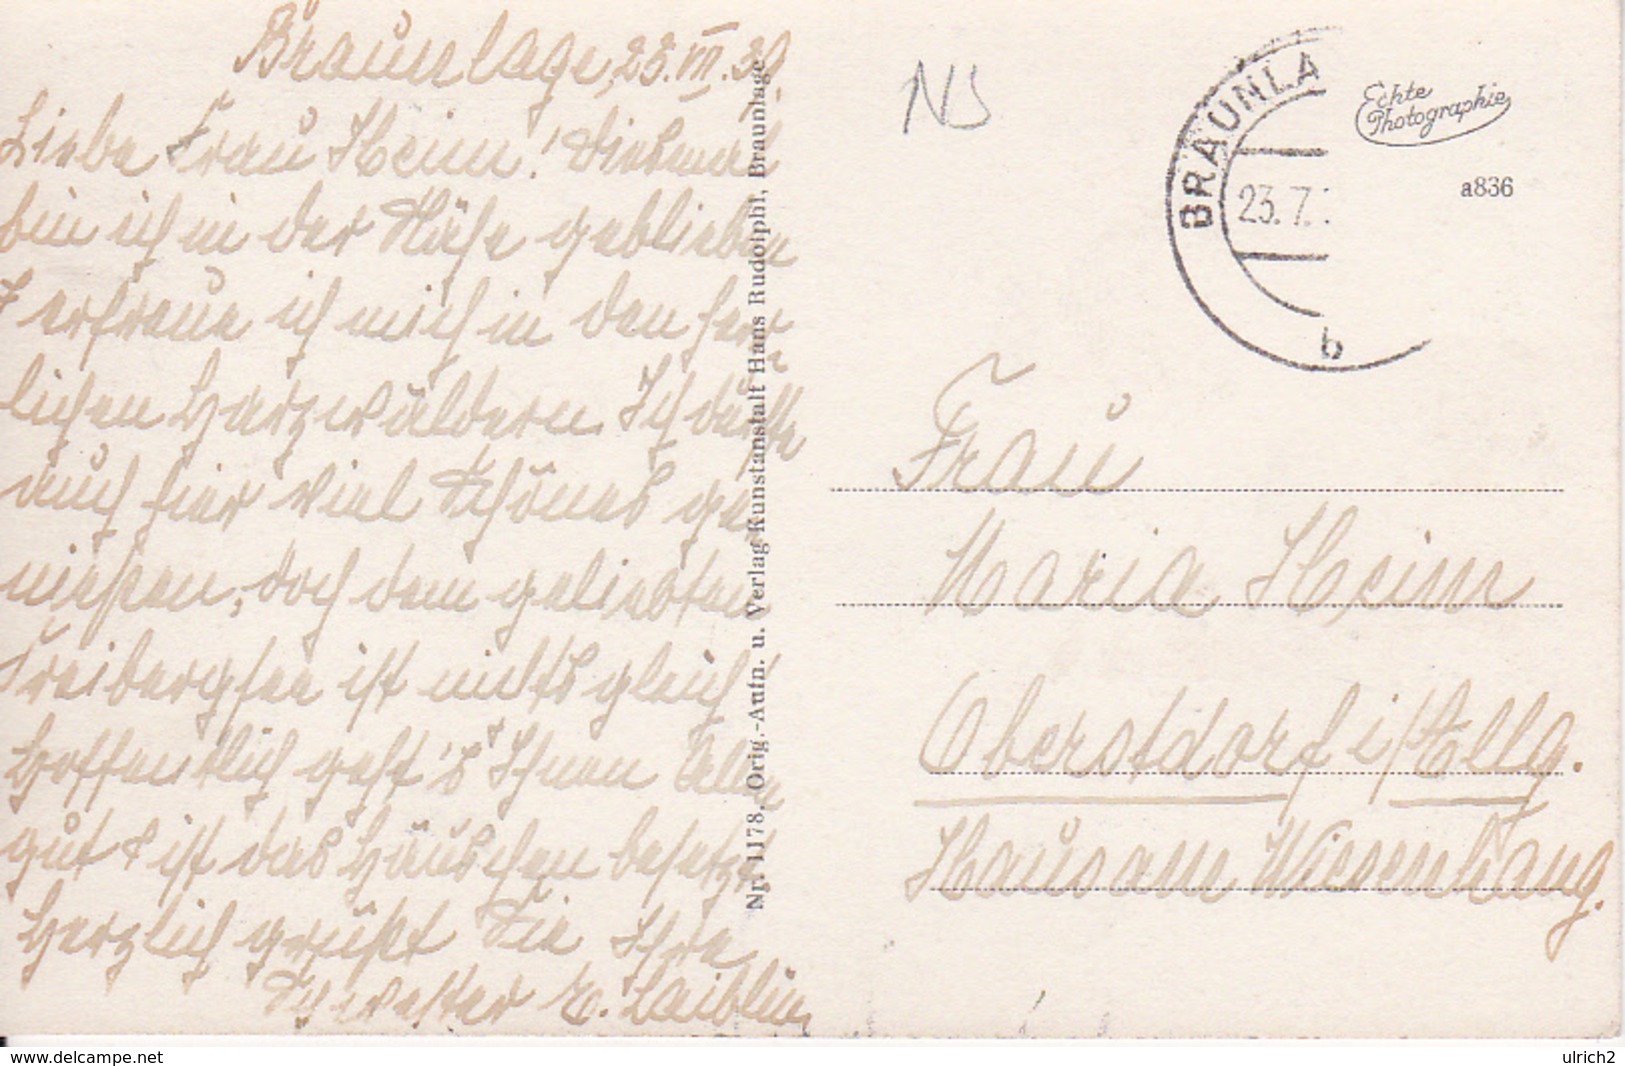 Braunlage, 23. VII. 39.
Liebe Frau Heim! Diesmal
bin ich in der Nähe geblieben
& erfreue ich mich in den herr-
lichen Harzwäldern. Ich durfte
auch hier viel Schönes ge-
nießen, doch dem geliebten
Freibergsee ist nichts gleich!
Hoffentlich geht's Ihnen Allen
gut & ist das Häuschen besetzt.
Herzlich grüßt Sie Ihre
Schwester E. Laiblin
Nr. 1178. Orig.-Aufn. u. Verlag Kunstanstalt Hans Rudolphi, Braunlage
NS
BRAUNLA
23.7.
b
Echte
Photographie
a836
Frau
Maria Heim
Oberstdorf i/Allg.
Haus am Wiesenhang.
www.delcampe.net
ulrich2